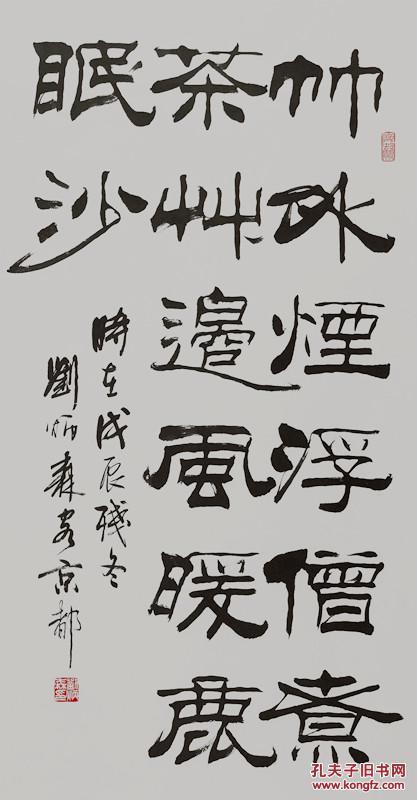 竹外煙浮僧煮
茶艸邊風暖鹿
眠沙
時在戊辰殘冬
劉炳森客京都
孔夫子旧书网
www.kongfz.com